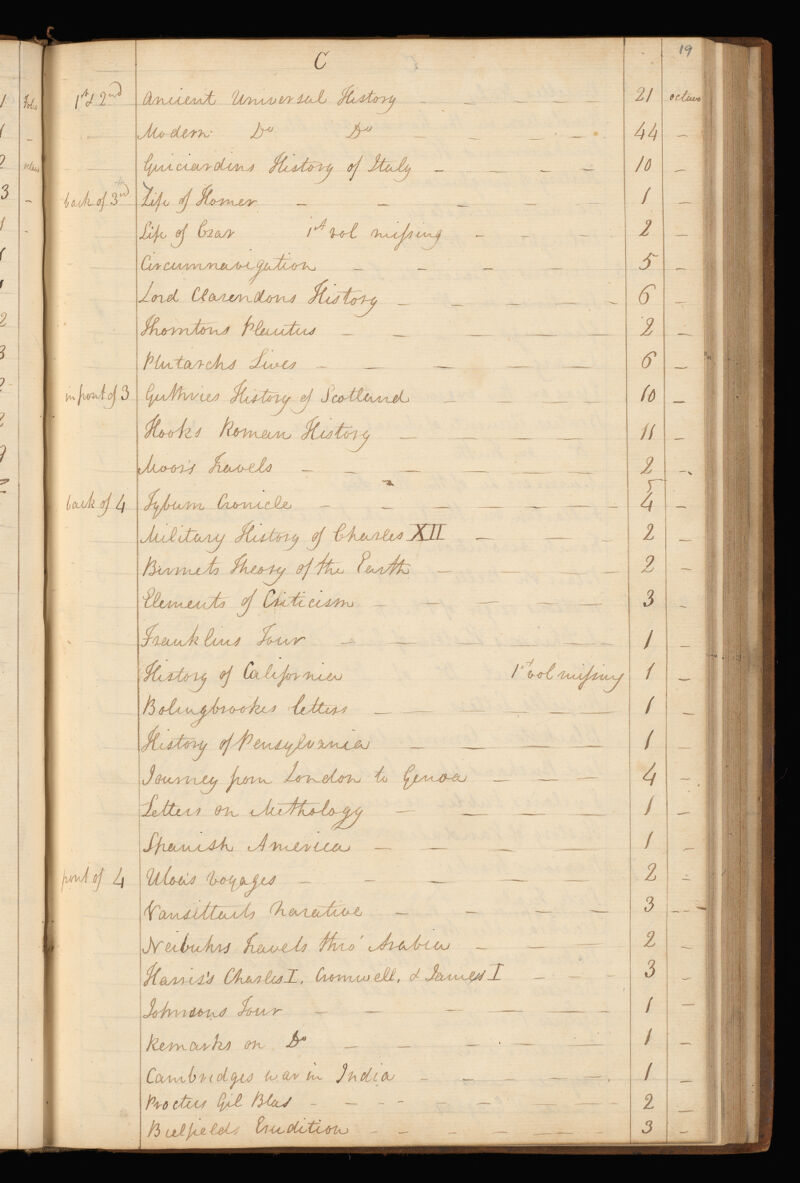 19
C
1st & 2nd Ancient Universal History 21 octavo
Modern Do Do 44
Guiciardins History of Italy 10
back of 3rd Life of Homer 1
Life of Czar 1st vol missing 2
Circumnavigation 5
Lord Clarendons History 6
Thorntons Plautus 2
Plutarchs Lives 6
in front of 3 Guthries History of Scotland 10
Hooks Roman History 11
Moors Travels 2
back of 4 Tyburn Cronicle 5 4
Military History of Charles XII 2
Burnets Theory of the Earth 2
Elements of Criticism 3
Franklins Tour 1
History of California 1st vol missing 1
Bolingbrookes letters 1
History of Pensylvania 1
Journey from London to Genoa 4
Letters on Mithology 1
Spanish America 1
front of 4 Uloas voyages 2
Vansittarts narative 3
Neibuhrs Travels thro' Arabia 2
Harris's Charles I, Cromwell, & James I 3
Johnsons Tour 1
Remarks on Do 1
Cambridges war in India 1
Procters Gil Blas 2
Bielfields Erudition 3